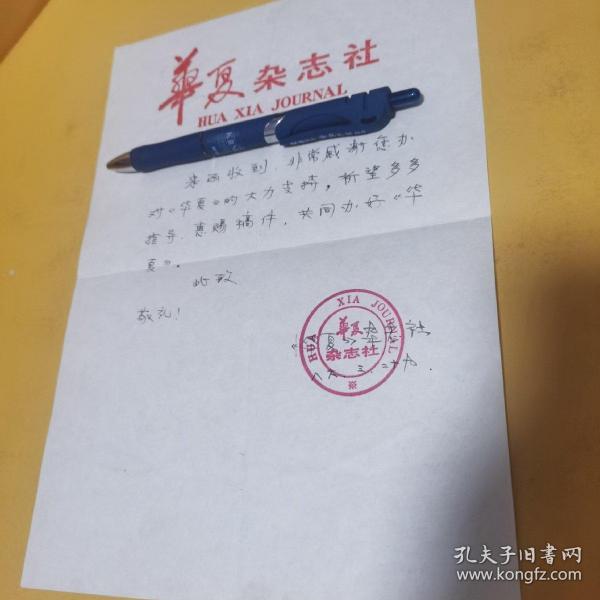 華夏杂志社
HUA XIA JOURNAL
来函收到，非常感谢您办
对《华夏》的大力支持，祈望多多
指导、惠赐稿件，共同办好《华
夏》。
此致
敬礼！
HUA XIA JOURNAL
華夏
杂志社
八六.三.二十九.
孔夫子旧书网
www.kongfz.com